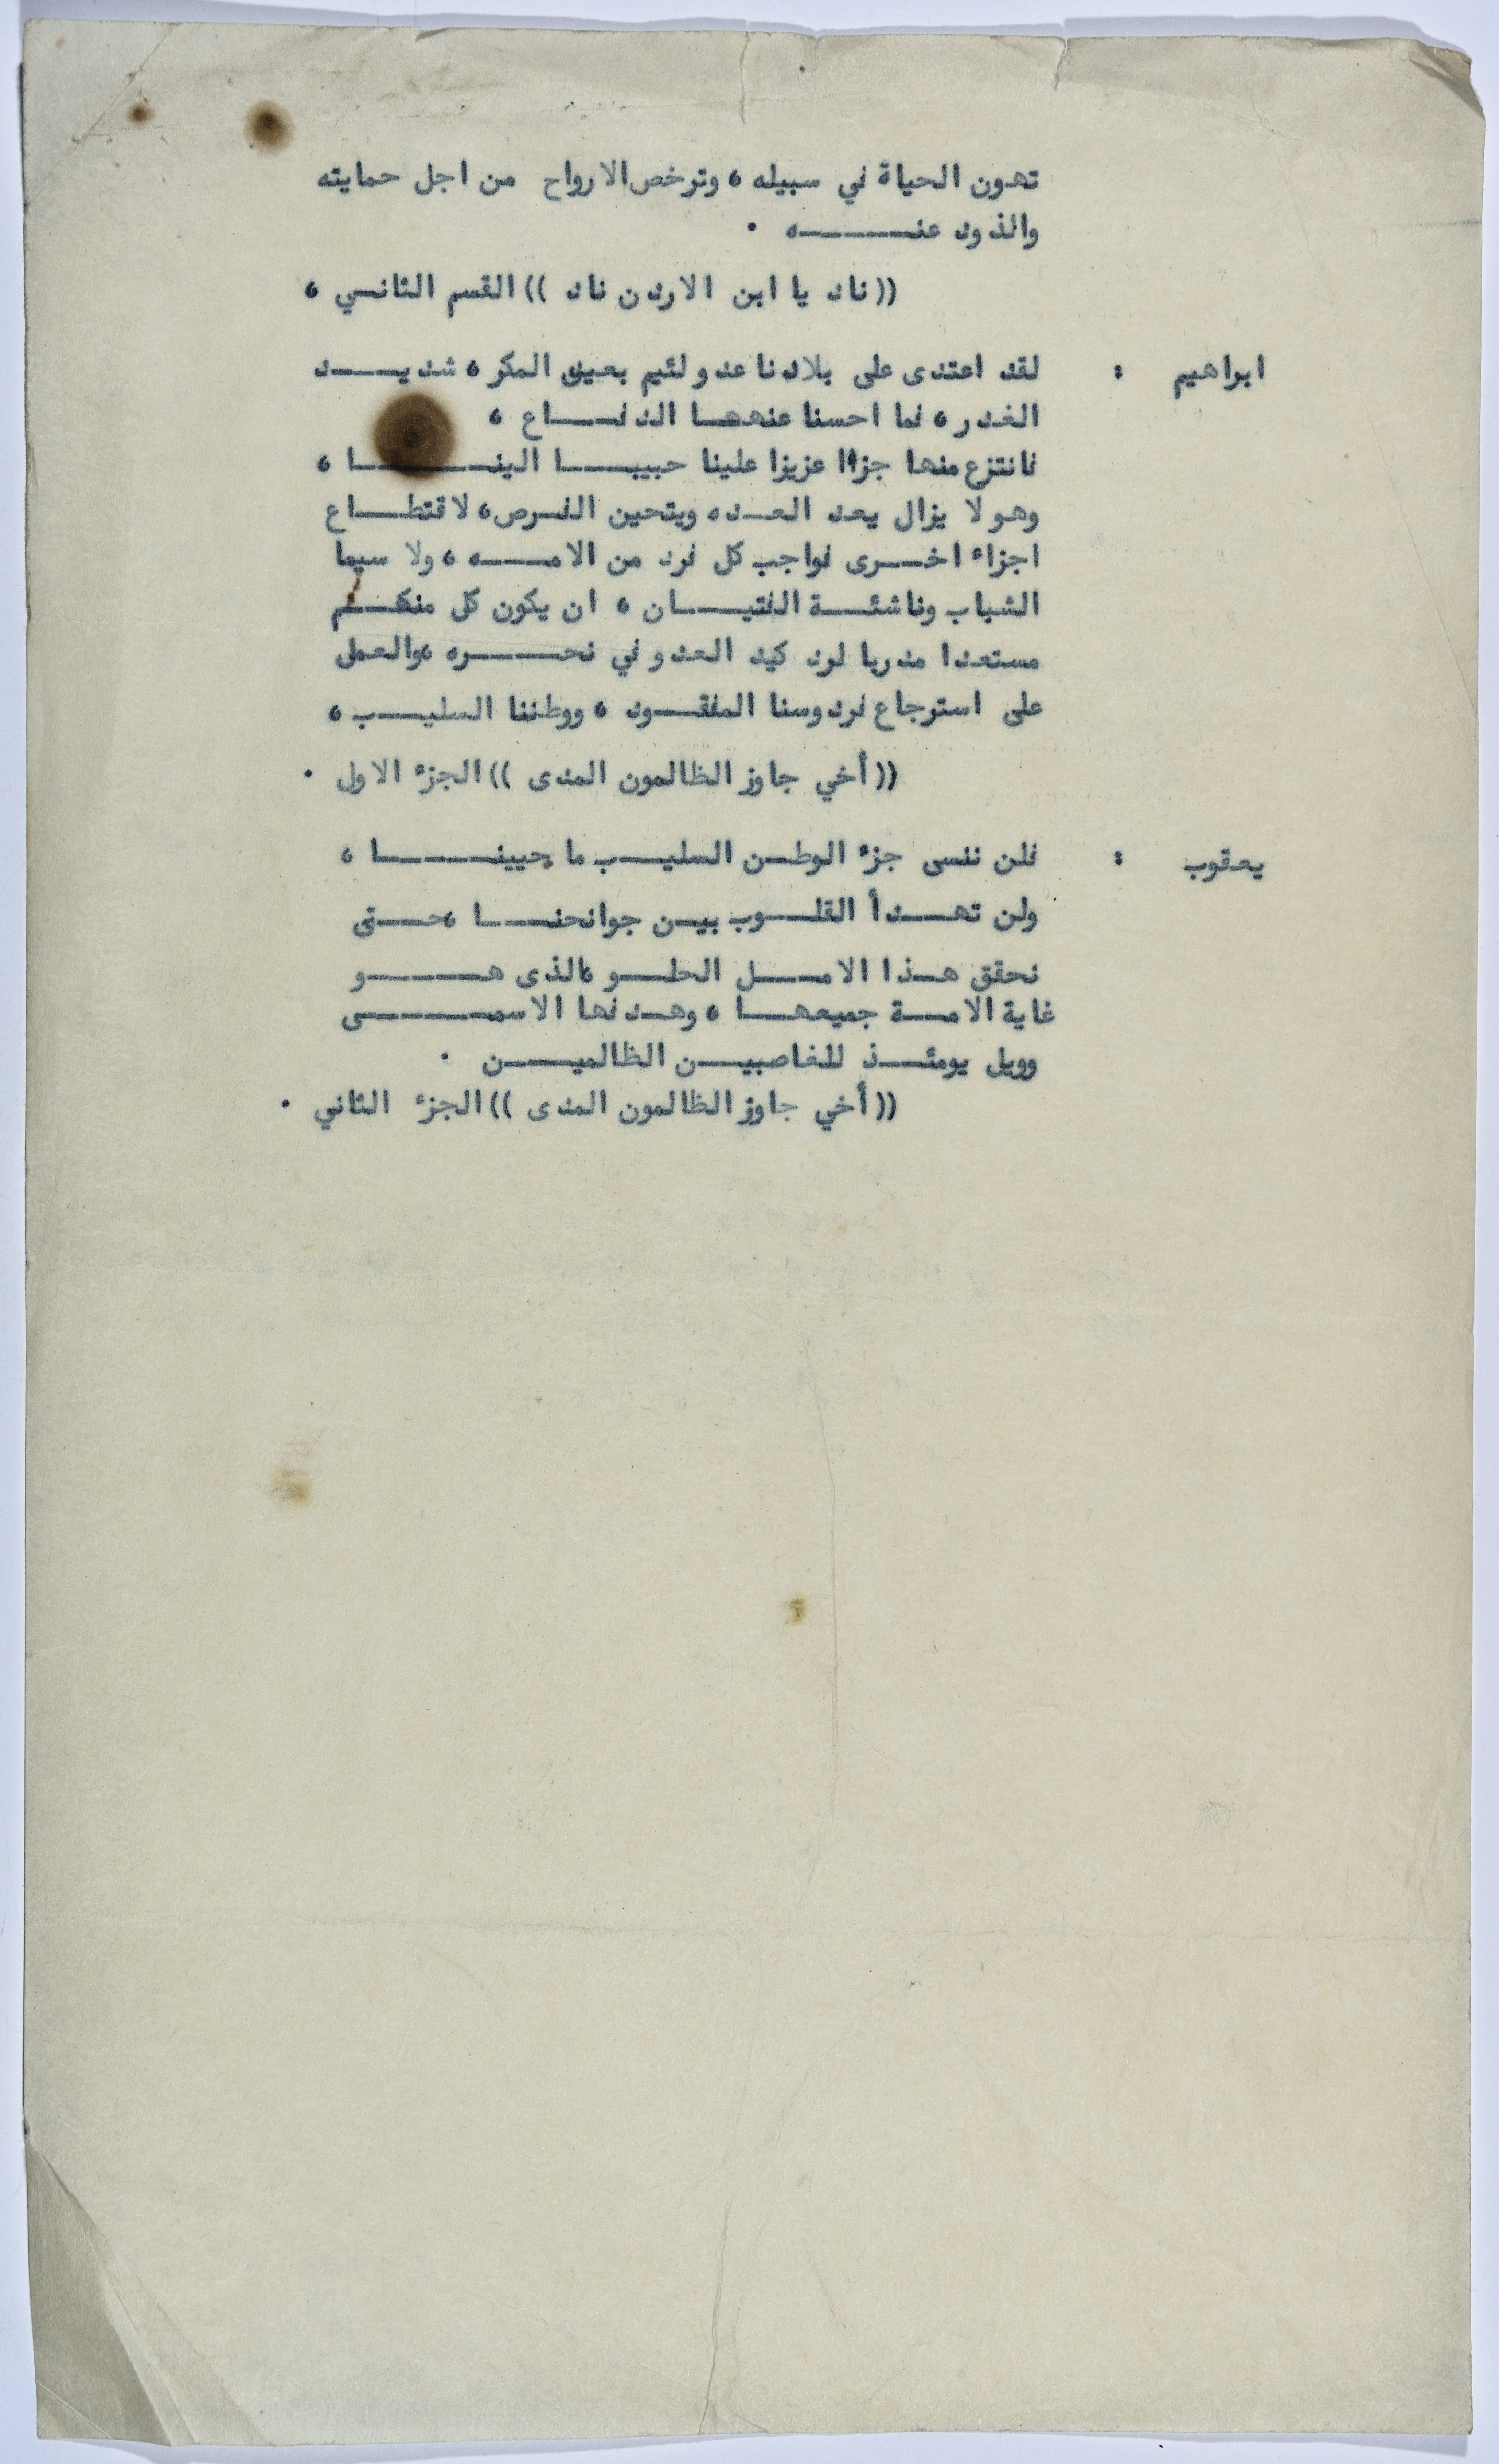 تهون الحياة في سبيله ، وترخص الارواح من اجل حمايته
والذود عنـــــــه .
(( ناد يا ابن الاردن ناد )) القسم الثانـي ،
ابراهيم : لقد اعتدى على بلادنا عدو لئيم بعيد المكر ، شديـــــد
الغدر ، فما احسنا عنهـا الدفـــــاع ،
فانتزع منها جزءا عزيزا علينا حبيبـــــا الينـــــــا ،
وهو لا يزال يعد العـده ويتحين الفـرص ، لاقتطــــاع
اجزاء اخـــرى فواجب كل فرد من الامــــــه ، ولا سيما
الشباب وناشئــة الفتيــــان ، ان يكون كل منكــم
مستعدا مدربا لرد كيد العدو في نحـــــره ،والعمل
على استرجاع فردوسنا المفقــود ، ووطننا السليــب ،
(( أخي جاوز الظالمون المدى )) الجزء الاول .
يعقوب : فلن ننسى جزء الوطـن السليـــب ما حيينــــــا ،
ولن تهـــدأ القلـــوب بيـن جوانحنــــا ،حـــتى
نحقق هـذا الامــــل الحلـــو ،الذى هــــــو
غاية الامـــة جميعهـــا ، وهـدفها الاسمـــــــى
وويل يومئـــذ للغاصبيــــن الظالميــــن .
(( أخي جاوز الظالمون المدى )) الجزء الثاني .